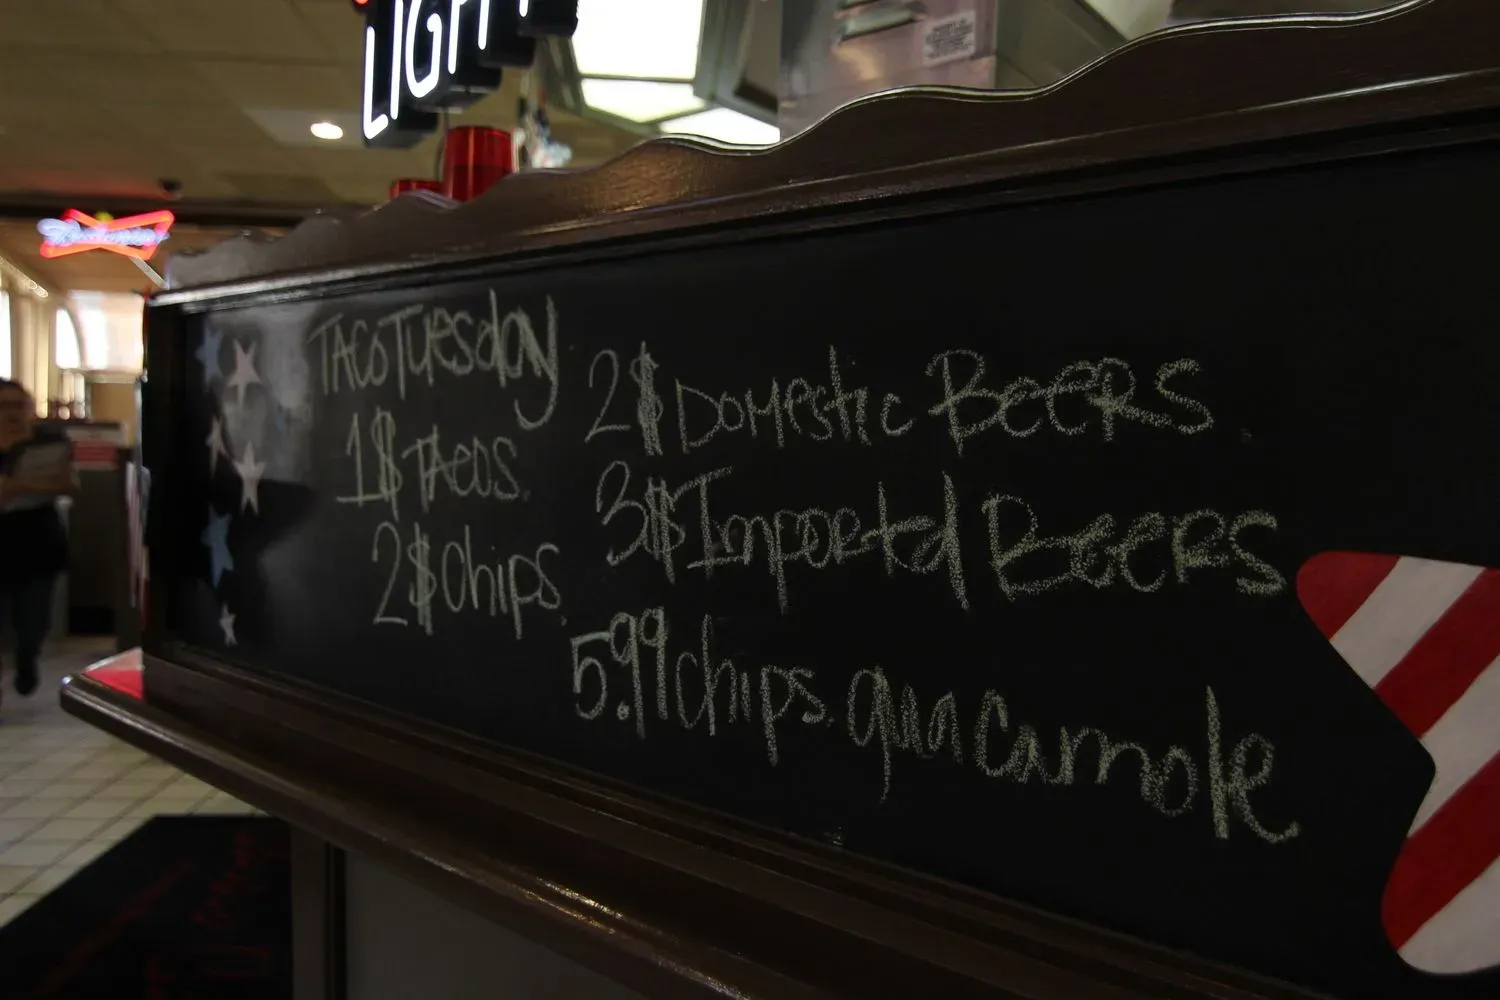 LIGHT
Budweiser
Taco Tuesday
1$ Tacos.
2$ Chips.
2$ Domestic Beers.
3$ Imported Beers
5.99 chips. guacamole